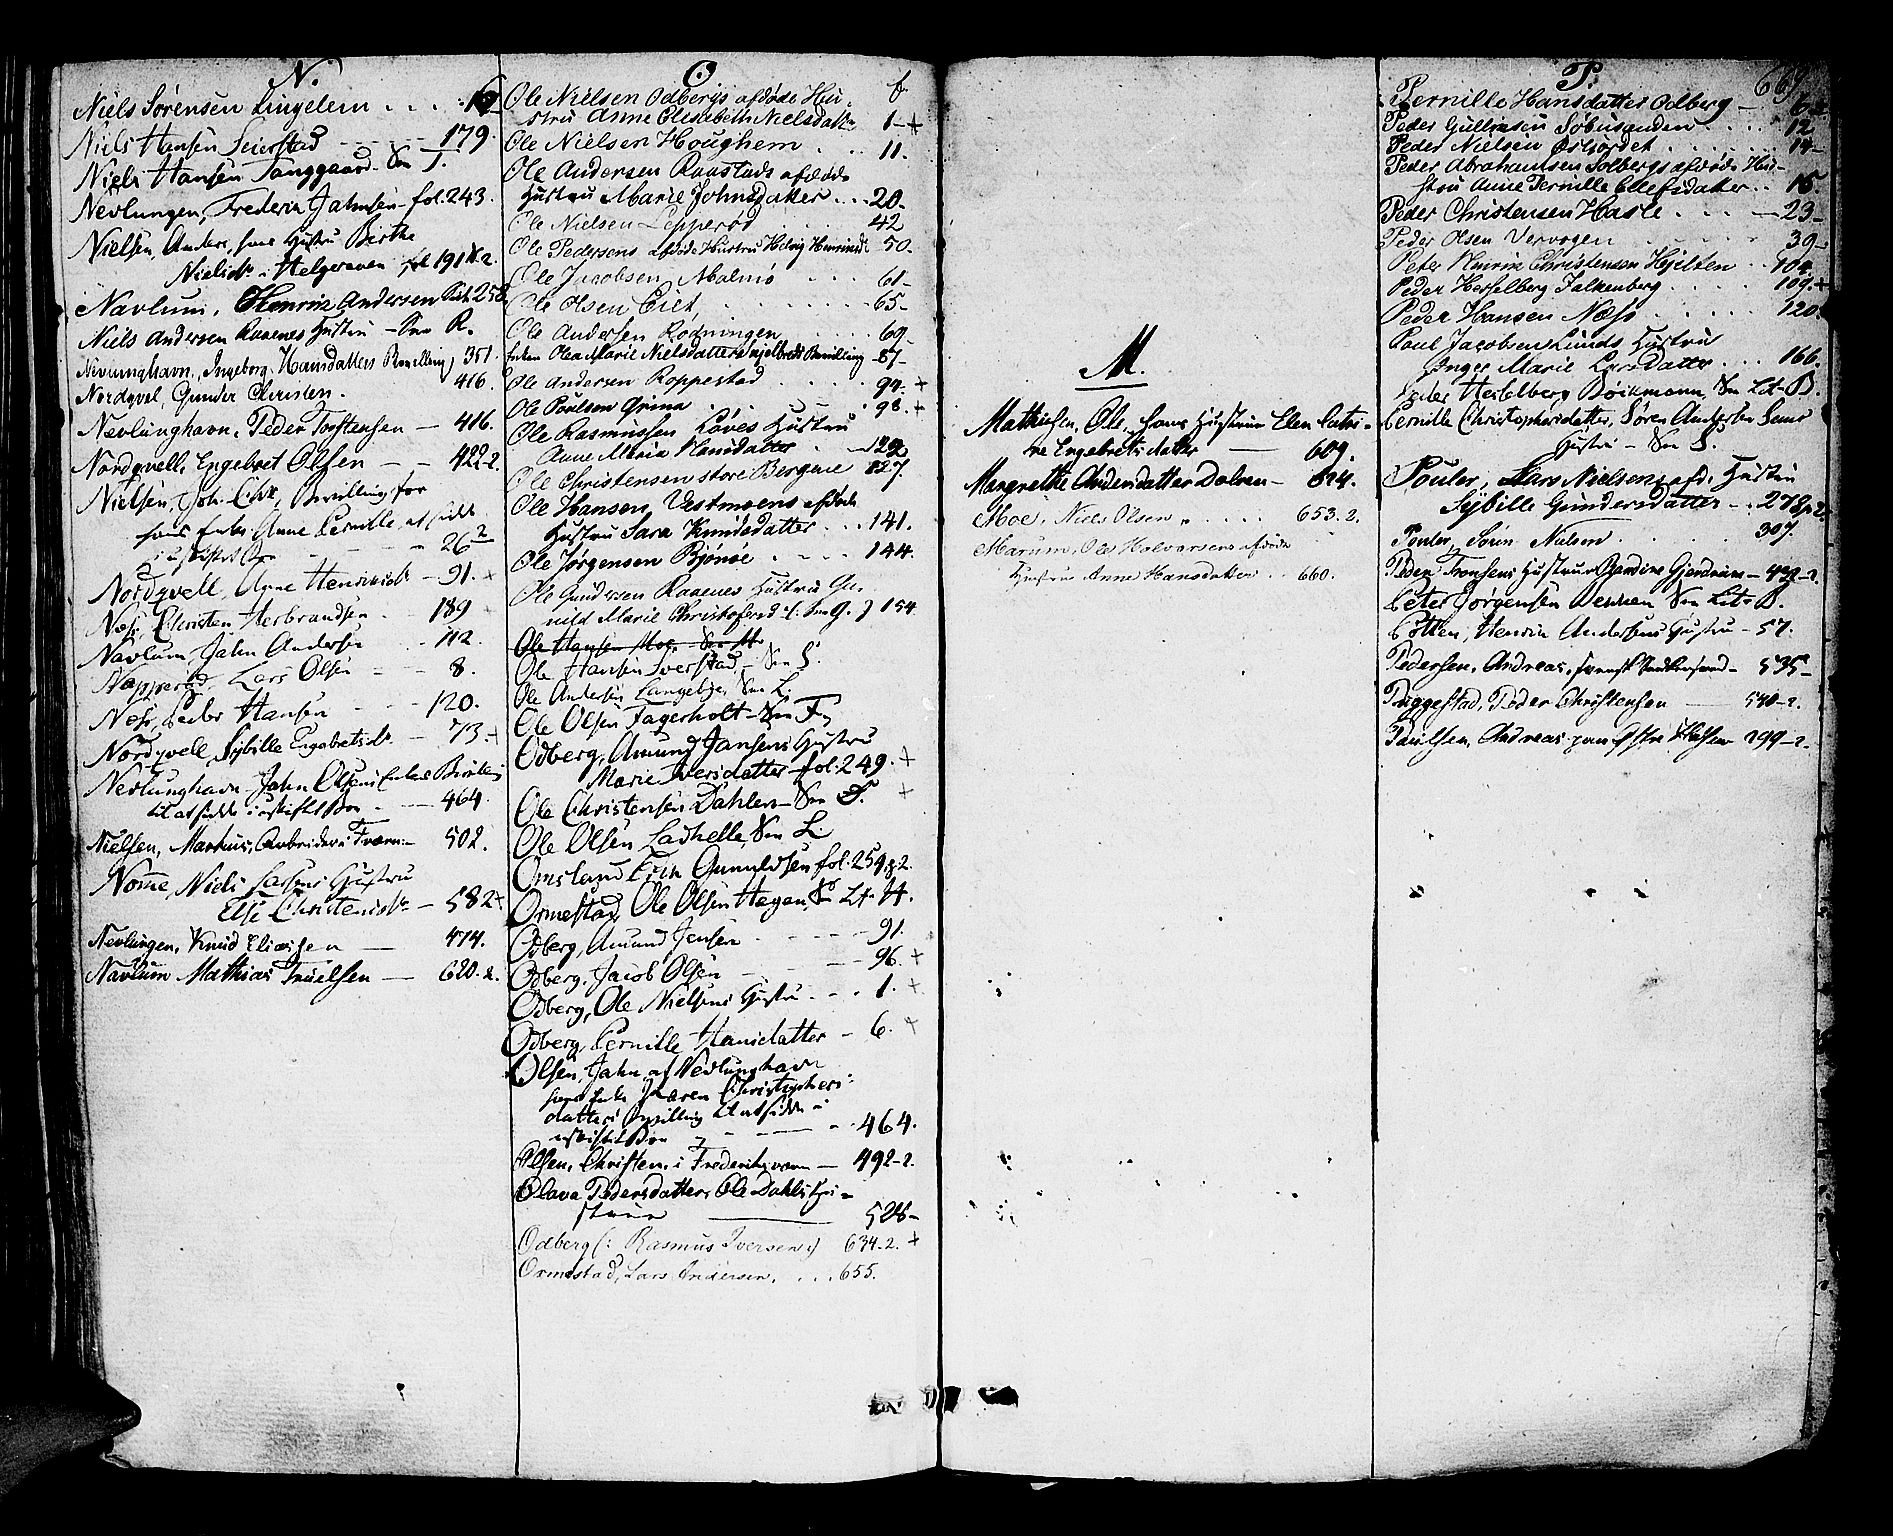 N.
Niels Sørensen Lingelem . . . . 10
Niels Hansen Seierstad - - - 179.
Niels Hansen Tanggaard. See T.
Nevlungen, Frederik Jahnsen - fol. 243.
Nielsen, Anders, hans Hustru Birthe
Nielsdr i Helgeraven fol 191 p. 2.
Navlum, Henrik Andersen 258
Niels Andersen Raaenes Hustru - See R.
Nevlunghavn, Ingeborg Hansdatters Bevilling 351.
Nordqvel, Gunder Christen. 416.
Nevlunghavn, Peder Torstensen — 416.
Nordqvell, Engebret Olsen - - 422-2.
Nielsen, Joh. Bevilling for
hans Enke Anne Pernille, at sidde
i uskiftet Boe - - - 262
Nordqvell, Anne Henriksdr - 91. +
Næs, Christen Herbrandsen . 189
Navlum, Jahn Andersen . . 112.
Næpperød, Lars Olsen - - 8.
Næs, Peder Hansen - - - 120.
Nordqvell, Sybille Engebretsdr. - 73. +
Nevlunghavn, Jahn Olsens Enkes Bevilling
til at sidde i uskiftet Boe . - - 464.
Nielsen, Markus, Arbeider i Fværn. - 502.
Nome, Niels Larsens Hustru
Else Christensdr. - 582 +
Nevlungen, Knud Eliasen — 474.
Navlum Mathias Truelsen — 620. 2.
O f
Ole Nielsen Odbergs afdøde Hu-
stru Anne Elisabeth Nielsdatter 1- +
Ole Nielsen Houghem . . . 11.
Ole Andersen Raastads afdøde
Hustru Marie Johnsdatter . . . 20.
Ole Nielsen Lepperød . . . 42
Ole Pedersens afdøde Hustru Helvig Henriksdr 50.
Ole Jacobsen Malmø . . . 61-
Ole Olsen Eiet, . . . . 65-
Ole Andersen Rødningen . . . . 69-
Enken Olea Marie Nielsdatters Bevilling - 87-
Ole Andersen Roppestad . . . . . 94. +
Ole Poulsen Grima . . . . 98. +
Ole Rasmussen Løves Hustru
Anne Maria Hansdatter . 122
Ole Christensen store Bergene 127.
Ole Hansen Vestmoens afdøde
Hustru Sara Knudsdatter . . . 141.
Ole Jørgensen Bjønse . . . . 144.
Ole Gundersen Raaenes Hustru Gu-
nild Marie Christofersd. see G. 154
Ole Hansen Moe, See M.
Ole Hansen Sverstad, - See S.
Ole Andersen Langebye, See L.
Ole Olsen Fagerholt - See F,
Odberg, Amund Jansens Hustru
Marie Iversdatter - fol. 249. +
Ole Christensen Dahlen - See D. +
Ole Olsen Ladhelle, See L.
Omsland Erik Gunuldsen fol. 259 p. 2.
Ormestad, Ole Olsen Hagen, S. Lt. H.
Odberg, Amund Jensen . - - - 91.
Odberg, Jacob Olsen - - - 96. +
Odberg, Ole Nielsens Hustru . . . 1. +
Odberg, Pernille Hansdatter - 6. +
Olsen, Jahn, af Nevlunghavn
hans Enke Karen Christophers-
datters Bevilling til at sidde i
uskiftet Boe - - - 464.
Olsen, Christen, i Frederiksværn — 492-2.
Olava Pedersdatter, Ole Dahls Hu-
strue — 528-
Odberg (: Rasmus Iversen :) 634-2. +
Ormestad, Lars Andersen, . . . 655.
M.
Mathisen, Ole, hans Hustrue Elen Catri-
ne Engebretsdatter — 609.
Margrethe Andersdatter Dolven - 624.
Moe, Niels Olsen . . . . . 653. 2.
Marum, Ole Halvorsens afdøde
Hustru Anne Hansdatter . . 660.
P. 669
Pernille Hansdatter Odberg - 6 +
Peder Gulliksen Søbusanden . . . . 12
Peder Nielsen Østjordet . . . . . 14-
Peder Abrahamsen Solbergs afdøde Hu-
stru Anne Pernille Ellefsdatter . . 15.
Peder Christensen Hasle . . . — 23-
Peder Olsen Vervogen . . . . 39-
Peter Henrik Christensen Hjelten . . 104.
Peder Hesselberg Falkenberg . . . . 109. +
Peder Hansen Næss . . . . . . 120.
Poul Jacobsen Lunds Hustru
Inger Marie Larsdatter . . . 166.
Peder Hesselberg Bøckmann, See Lit. B.
Pernille Christophersdatter, Søren Andersen
Hustru - See S.
Pouler, Lars Nielsens afd. Hustru
Sybille Gundersdatter - . 278 p. 2.
Pouler, Søren Nielsen . . 307.
Peder Tronsens Hustrue Bendine Gjerdrum — 432-2.
Peter Jørgensen See Lit. B.
Potten, Henrik Andersens Hustru - 57.
Pedersen, Andreas, - 535-
Piggestad, Peder Christensen — 540-2.
Poulsen, Andreas paa Østre Halsen 299-2.